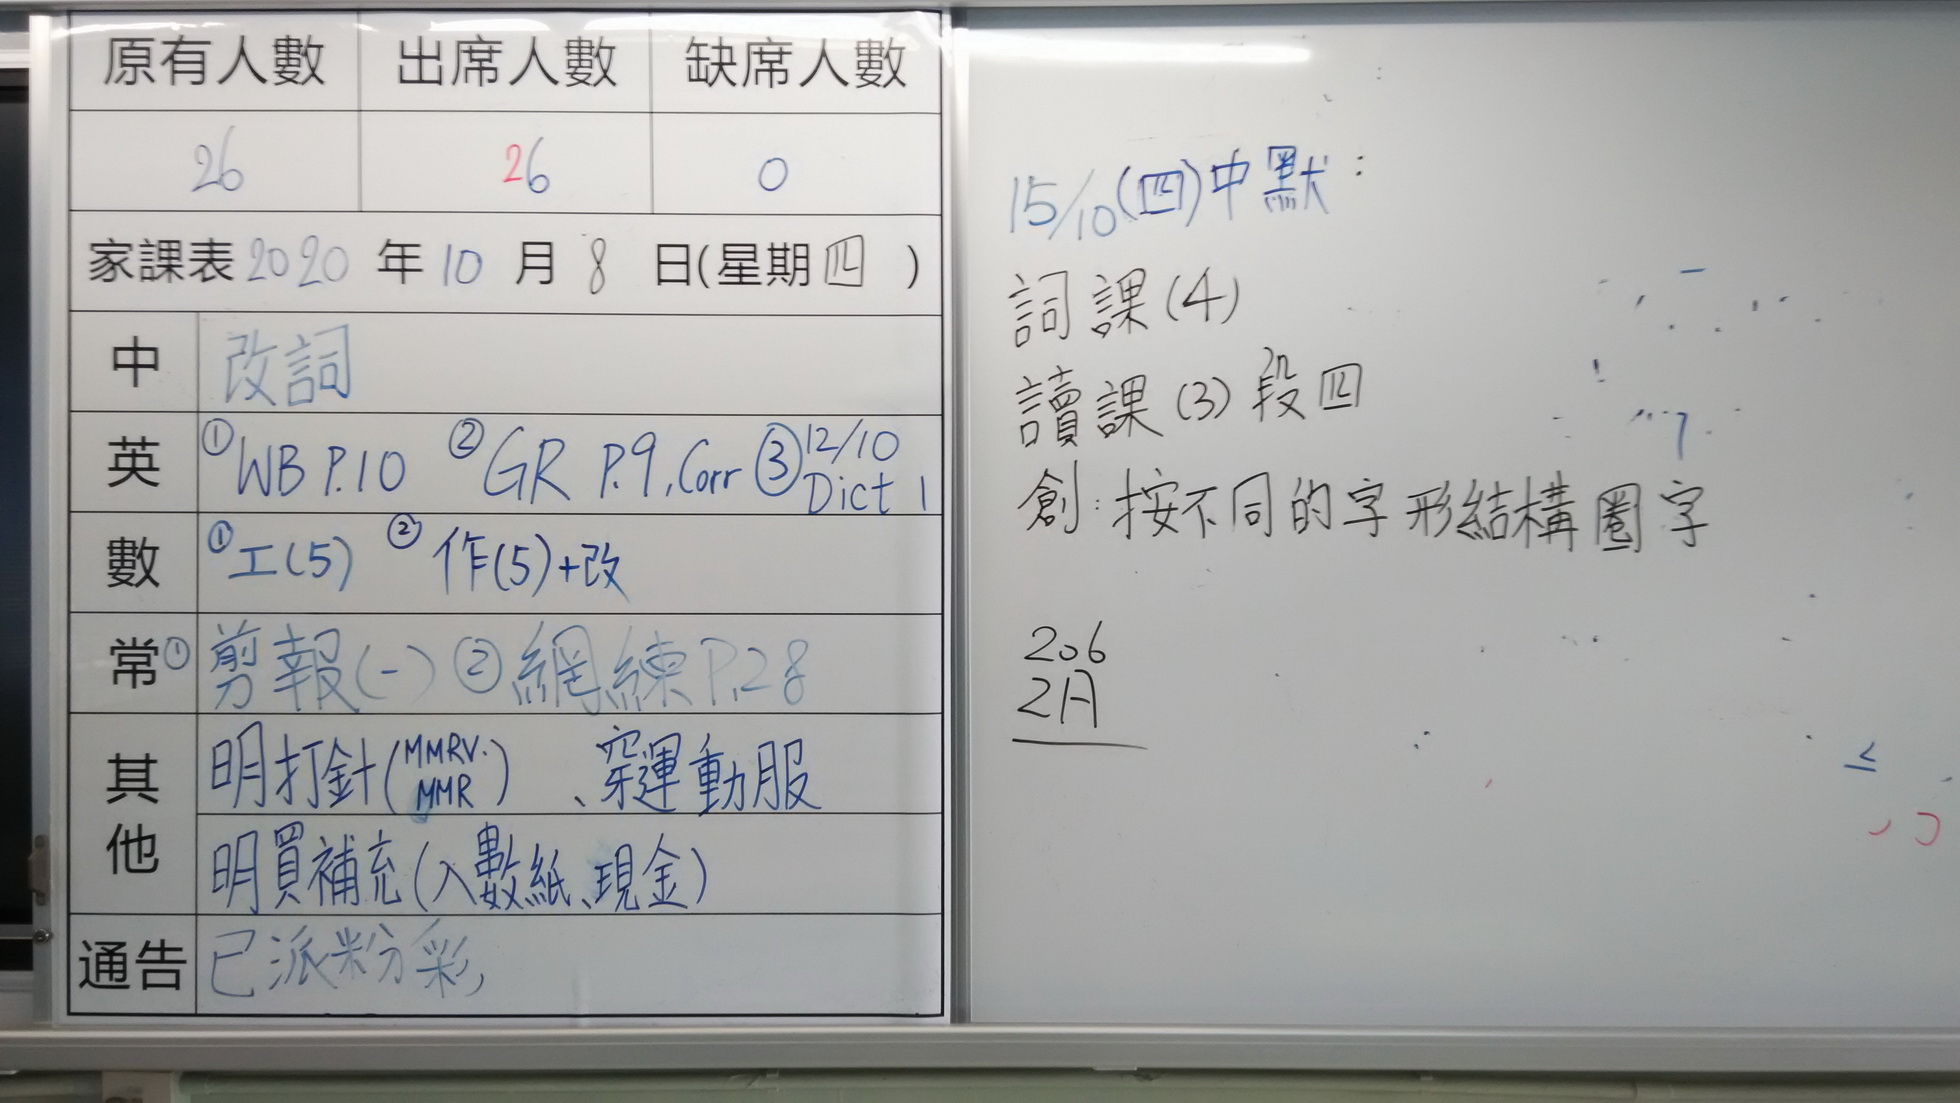 原有人數 出席人數 缺席人數
26 26 0
家課表 2020 年 10 月 8 日(星期四)
中 改詞
英 ①WB P.10 ②GR P.9, Corr ③12/10 Dict 1
數 ①工(5) ②作(5)+改
常 ①剪報(一) ②網練P.28
其他 明打針(MMRV. MMR)、穿運動服
明買補充(入數紙、現金)
通告 已派粉彩
15/10(四)中默:
詞課(4)
讀課(3)段四
創:按不同的字形結構圈字
206
2A